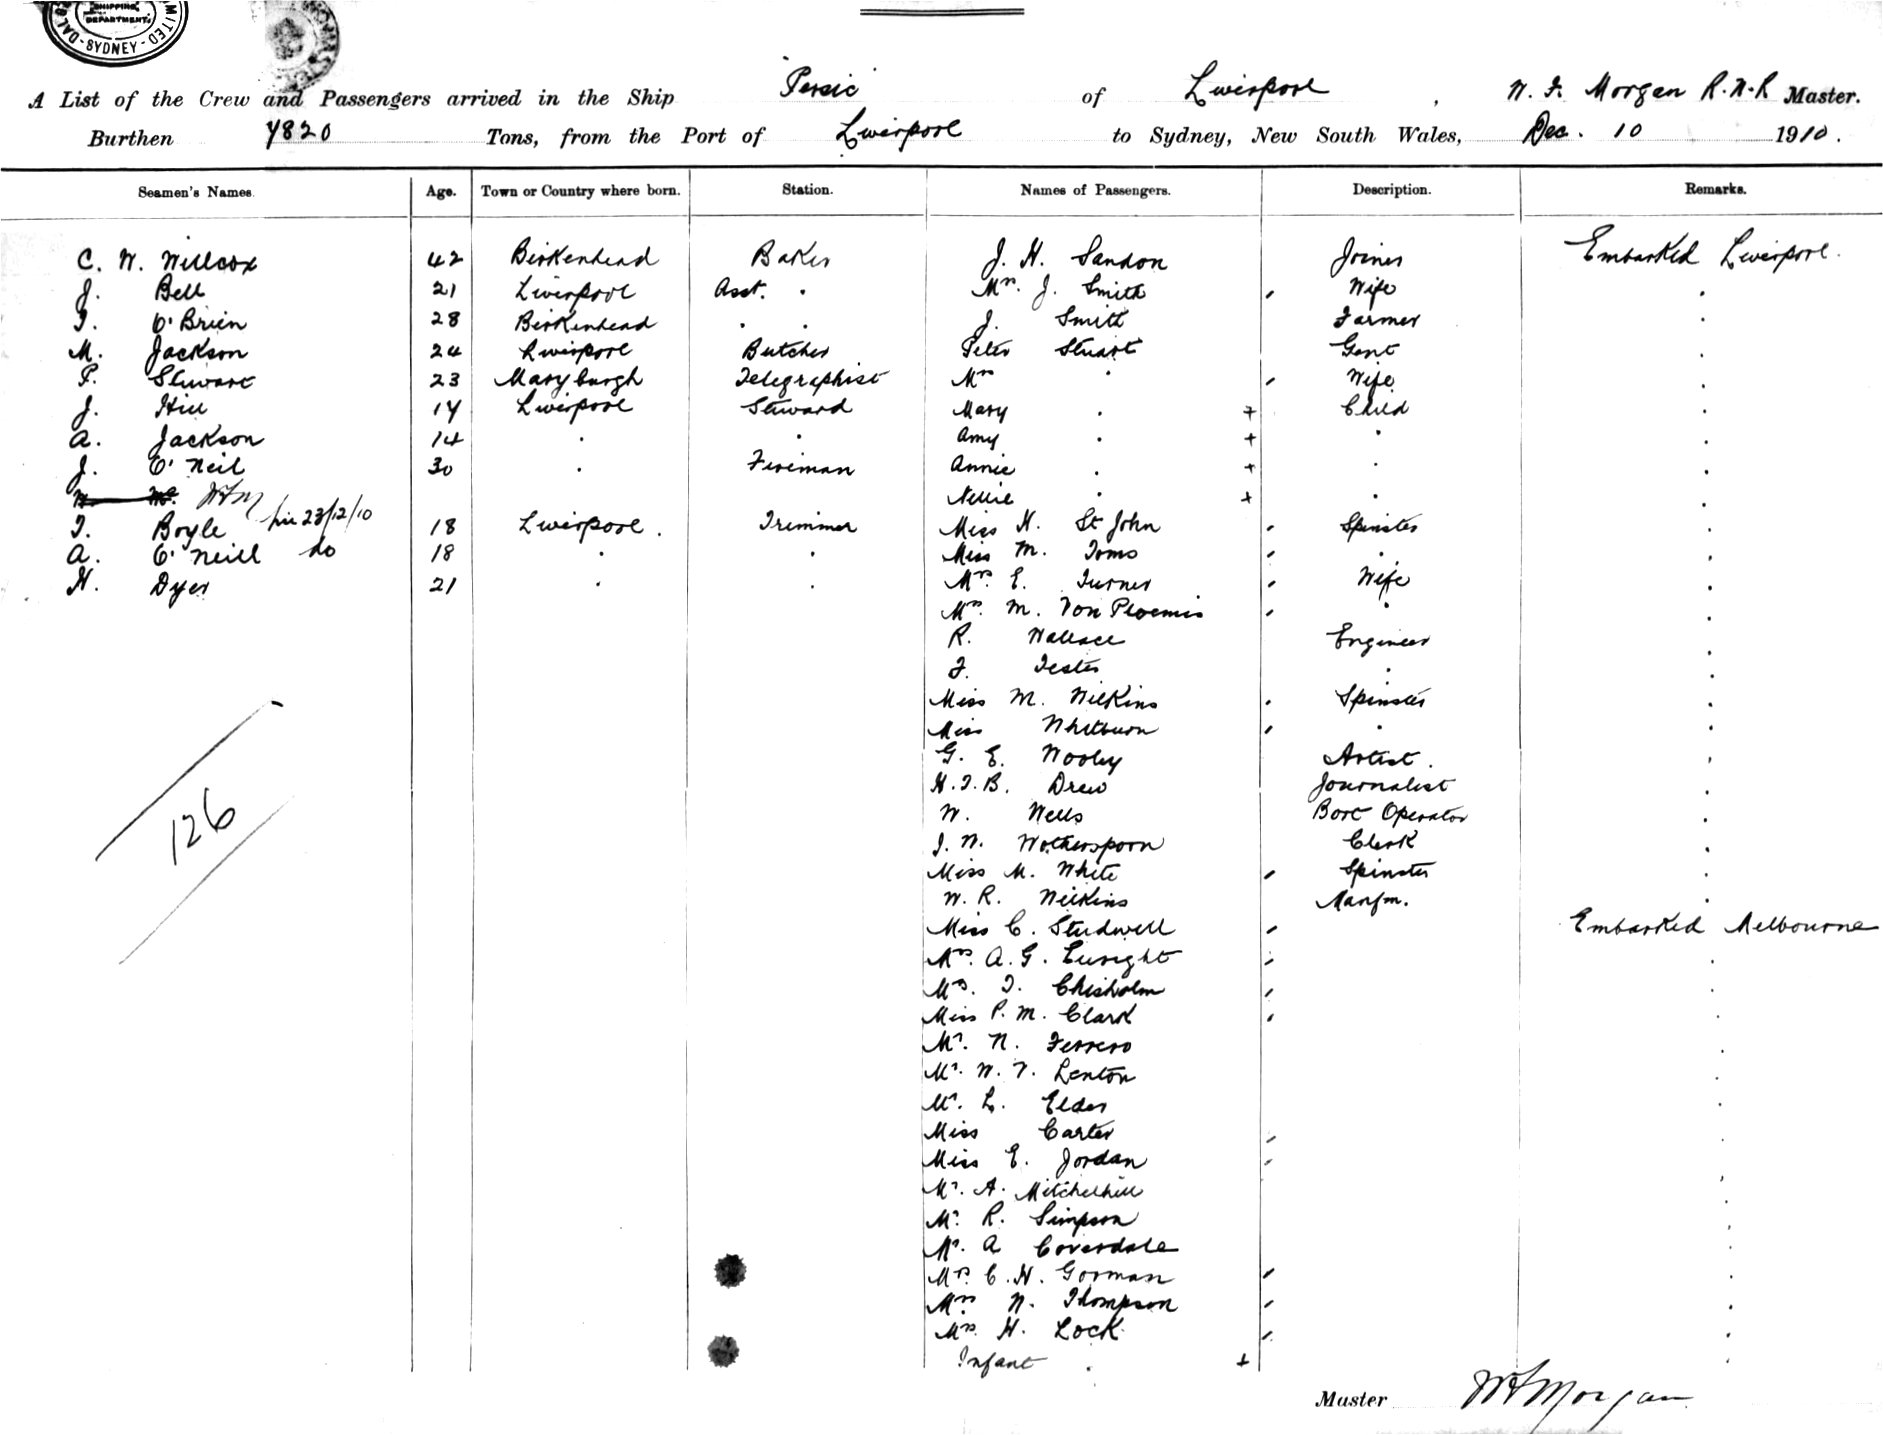 SHIPPING
DEPARTMENT.
SYDNEY
A List of the Crew and Passengers arrived in the Ship "Persic" of Liverpool, W. F. Morgan R.N.R Master.
Burthen 7820 Tons, from the Port of Liverpool to Sydney, New South Wales, Dec. 10 1910.
Seamen's Names. Age. Town or Country where born. Station. Names of Passengers. Description. Remarks.
C. W. Willcox 42 Birkenhead Baker J. H. Sandon Joiner Embarked Liverpool.
J. Bell 21 Liverpool Asst. " Mrs. J. Smith Wife "
T. O'Brien 28 Birkenhead " " J. Smith Farmer "
M. Jackson 24 Liverpool Butcher Peter Stuart Gent "
P. Stewart 23 Maryburgh Telegraphist Mrs " Wife "
J. Hill 17 Liverpool Steward Mary " + Child "
A. Jackson 14 " " Amy " + " "
J. O'Neil 30 " Fireman Annie " + " "
WFM Nellie " + " "
T. Boyle 23/12/10 18 Liverpool. Trimmer Miss H. St John Spinster "
A. O'Neill do 18 " " Miss M. Toms " "
H. Dyer 21 " " Mrs. E. Turner Wife "
Mrs. M. Von Ploennis " "
R. Wallace Engineer "
F. Tester " "
Miss M. Wilkins Spinster "
Miss Whitburn " "
G. E. Wooley Artist. "
H. T. B. Drew Journalist "
W. Wells Bort Operator "
126
J. W. Wotherspoon Clerk "
Miss M. White Spinster "
W. R. Wilkins Manfr. "
Miss C. Studwell Embarked Melbourne
Mrs. A. G. Enright "
Mrs. T. Chisholm "
Miss P. M. Clark "
Mr. N. Ferrero "
Mr. W. V. Lenton "
Mr. L. Elder "
Miss Carter "
Miss E. Jordan "
Mr. A. Mitchelhill "
Mr. R. Simpson "
Mr. A Coverdale "
Mrs. C. H. Gorman "
Mrs. N. Thompson "
Mrs. H. Lock "
Infant " + "
Master WFMorgan